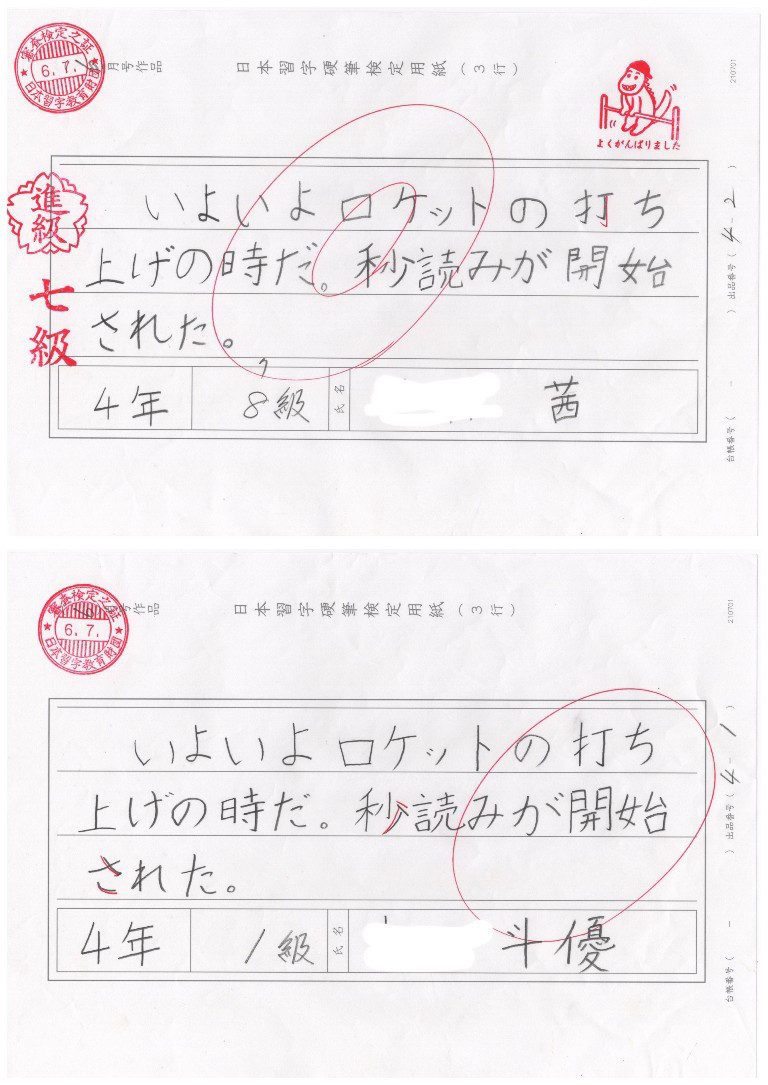 審査検定之証
6.7.
日本習字教育財団
月号作品
日本習字硬筆検定用紙(3行)
よくがんばりました
210701
進級
七級
いよいよロケットの打ち
上げの時だ。秒読みが開始
された。
4年
7
8級
氏名
茜
出品番号( 4-2 )
台帳番号( - )
審査検定之証
6.7.
日本習字教育財団
月号作品
日本習字硬筆検定用紙(3行)
210701
いよいよロケットの打ち
上げの時だ。秒読みが開始
された。
4年
1級
氏名
斗優
出品番号( 4-1 )
台帳番号( - )